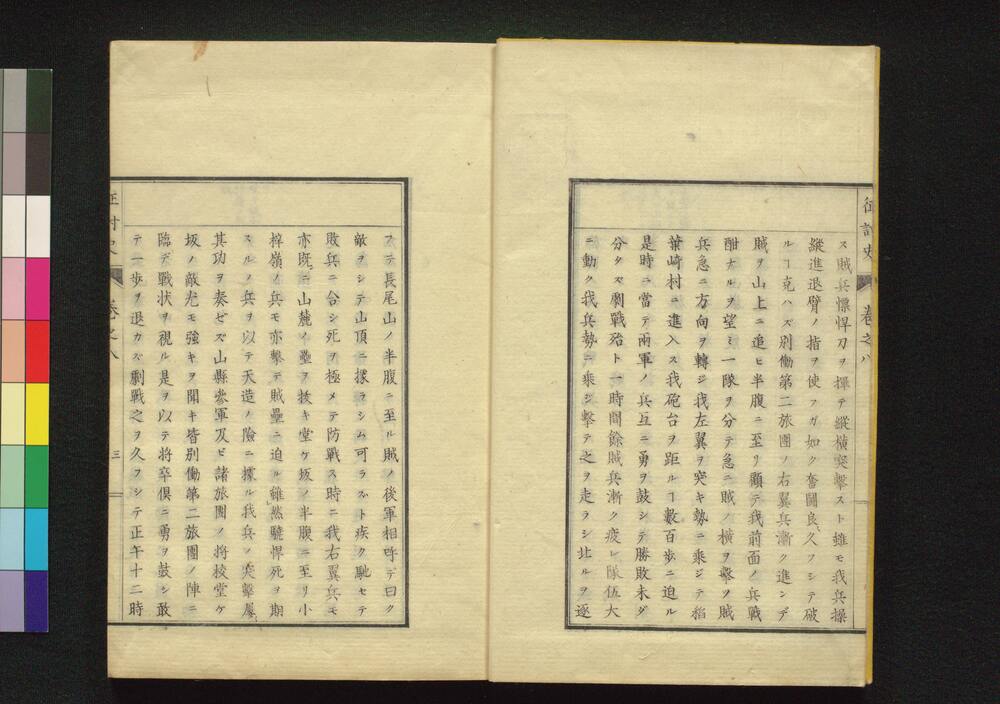 征討史 巻之八
ス賊兵慓悍刀ヲ揮テ縦橫突擊スト雖モ我兵操
縱進退臂ノ指ヲ使フガ如ク奮鬪良、久フシテ破
ルヿ克ハズ別働第二旅團ノ右翼兵漸ク進ンデ
賊ヲ山上ニ追ヒ半腹ニ至リ顧テ我前面ノ兵戰
酣ナルヲ望ミ一隊ヲ分テ急ニ賊ノ橫ヲ擊ツ賊
兵急ニ方向ヲ轉ジ我左翼ヲ突キ勢ニ乘ジテ稻
葉崎村ニ進入ス我砲台ヲ距ルヿ數百步ニ迫ル
是時ニ當テ兩軍ノ兵互ニ勇ヲ鼓シテ勝敗未ダ
分タズ劇戰殆ト一時間餘賊兵漸ク疲レ隊伍大
ニ動ク我兵勢ニ乘ジ擊テ之ヲ走ラシ北ルヲ逐
フテ長尾山ノ半腹ニ至ル賊ノ後軍相呼デ曰ク
敵ヲシテ山頂ニ據ラシム可ラズト疾ク馳セテ
敗兵ニ合シ死ヲ極メテ防戰ス時ニ我右翼兵モ
亦既ニ山麓ノ壘ヲ拔キ堂ケ坂ノ半腹ニ至リ小
梓嶺ノ兵モ亦擊テ賊壘ニ迫ル雖然驍悍死ヲ期
スルノ兵ヲ以テ天造ノ險ニ據ル我兵ノ突擊屢、
其功ヲ奏ゼズ山縣參軍及ビ諸旅團ノ將校堂ケ
坂ノ敵尤モ強キヲ聞キ皆別働第二旅團ノ陣ニ
臨デ戰狀ヲ視ル是ヲ以テ將卒俱ニ勇ヲ鼓シ敢
テ一步ヲ退カズ劇戰之ヲ久フシテ正午十二時
征討史 巻之八 三